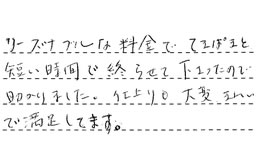 リーズナブルな料金で てきぱきと
短い時間で終らせて下さったので
助かりました。仕上りも大変きれい
で満足してます。